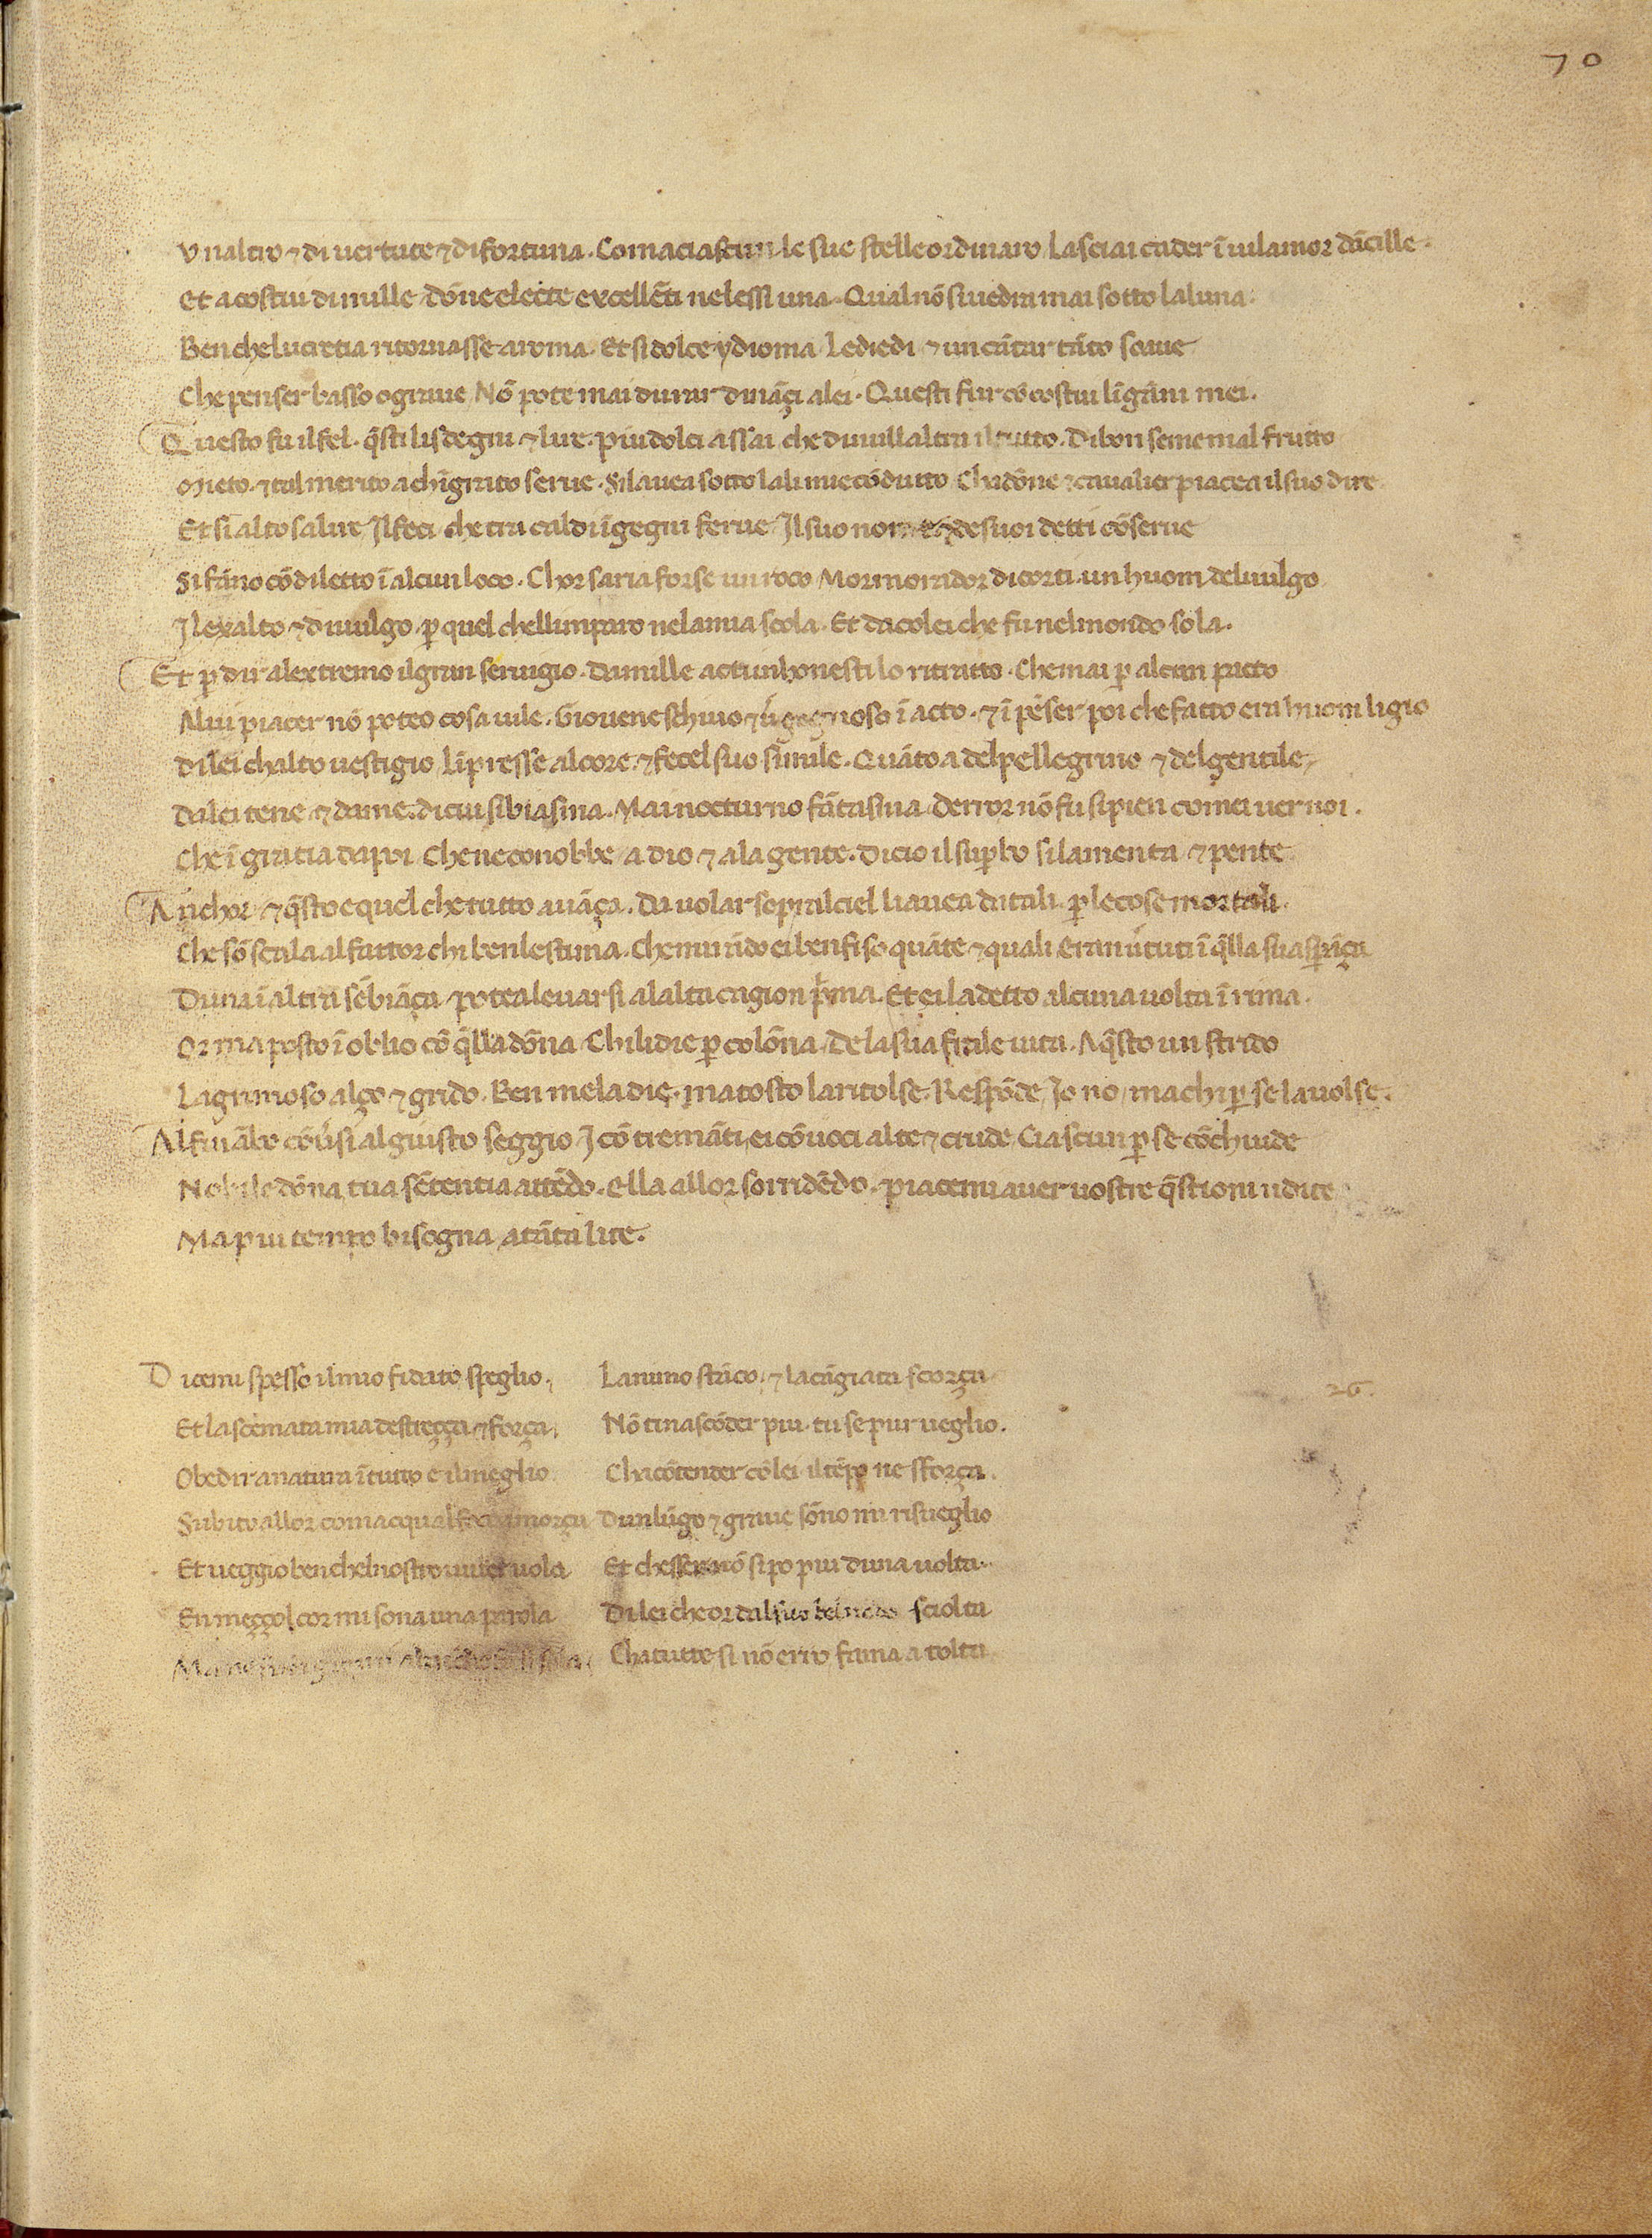 70
Unaltro ⁊ di uertute ⁊ di fortuna. Coma ciascun le sue stelle ordinaro Lasciai cader ī uil amor dācille.
Et a costui di mille dōne electe excellēti nelessi una. Qual nō si uedra mai sotto la luna.
Ben che lucretia ritornasse a roma. Et si dolce ydioma Le diedi ⁊ un cātar tāto soaue
Che penser basso o graue Nō pote mai durar dināçi a lei. Questi fur cō costui līgāni mei.
Questo fu il fel. q̄sti li sdegni ⁊ lire. piu dolci assai che di null altra il tutto. Di bon seme mal frutto
Mieto. ⁊ tal merito a chīgrato serue. Si lauea sotto lali mie cōdutto Cha dōne ⁊ caualier piacea il suo dire
Et si alto salire Il feci che tra caldi īgegni ferue Il suo nome de suoi detti cōserue
Si fāno cō diletto ī alcun loco. Chor saria forse un roco Mormorador di corti. un huom del uulgo
Il exalto ⁊ diuulgo. ꝑ quel chelli mparo ne la mia scola. Et da colei che fu nel mondo sola.
Et ꝑ dir al extremo il gran seruigio. Da mille acti inhonesti lo ritratto. Che mai ꝑ alcun pacto
A lui piacer nō poteo cosa uile. Giouene schiuo ⁊ u̓gognoso ī acto. ⁊ ī pēser poi che fatto era huom ligio
Di lei chalto uestigio Līpresse al core. ⁊ fecel suo simile. Quāto a del pellegrino ⁊ del gentile
Da lei tene ⁊ da me. di cui si biasma. Mai nocturno fātasma Derror nō fu si pien comei uer noi.
Che ī gratia da poi Che ne conobbe a dio ⁊ a la gente. Di cio il suꝑbo si lamenta ⁊ pente
Anchor ⁊ q̄sto e quel che tutto auāça. Da uolar sopral ciel li auea dat ali. ꝑ le cose mortali.
Che sō scala al fattor chi ben lestima. Che mirādo ei ben fiso quāte ⁊ quali Eran u̓tuti ī q̄lla sua sꝑāça
Duna ī altra sēbiāça potea leuarsi a lalta cagion p̓ma. Et ei la detto alcuna uolta ī rima.
Or ma posto ī oblio cō q̄lla dōna Chi li die ꝑ colōna De la sua frale uita. A q̄sto un strido
Lagrimoso alço ⁊ grido. Ben me la die. ma tosto la ritolse. Respōde Io no ma chi ꝑ se la uolse.
Al fin ābo cōu̓si al giusto seggio I cō tremāti ei cō uoci alte ⁊ crude Ciascun ꝑ se cōchiude
Nobile dōna tua sētentia attēdo. Ella allor sorridēdo. piacemi auer uostre q̄stioni udite
Ma piu tempo bisogna a tāta lite.
Dicemi spesso il mio fidato speglio. Lanimo stāco. ⁊ la cāgiata scorça 26.
Et la scemata mia destreçça ⁊ força. Nō ti nascōder piu. tu se pur ueglio.
Obedir a natura ī tutto e il meglio Cha cōtender cō lei il tēpo ne sforça.
Subito allor com acqual foco amorça Dun lūgo ⁊ graue sōno mi risueglio
Et ueggio ben chel nostro uiuer uola Et chesser nō si po piu duna uolta.
En meççol cor mi sona una parola Di lei che or dal suo bel nodo sciolta
Ma Cha tutte si nō erro fama a tolta.